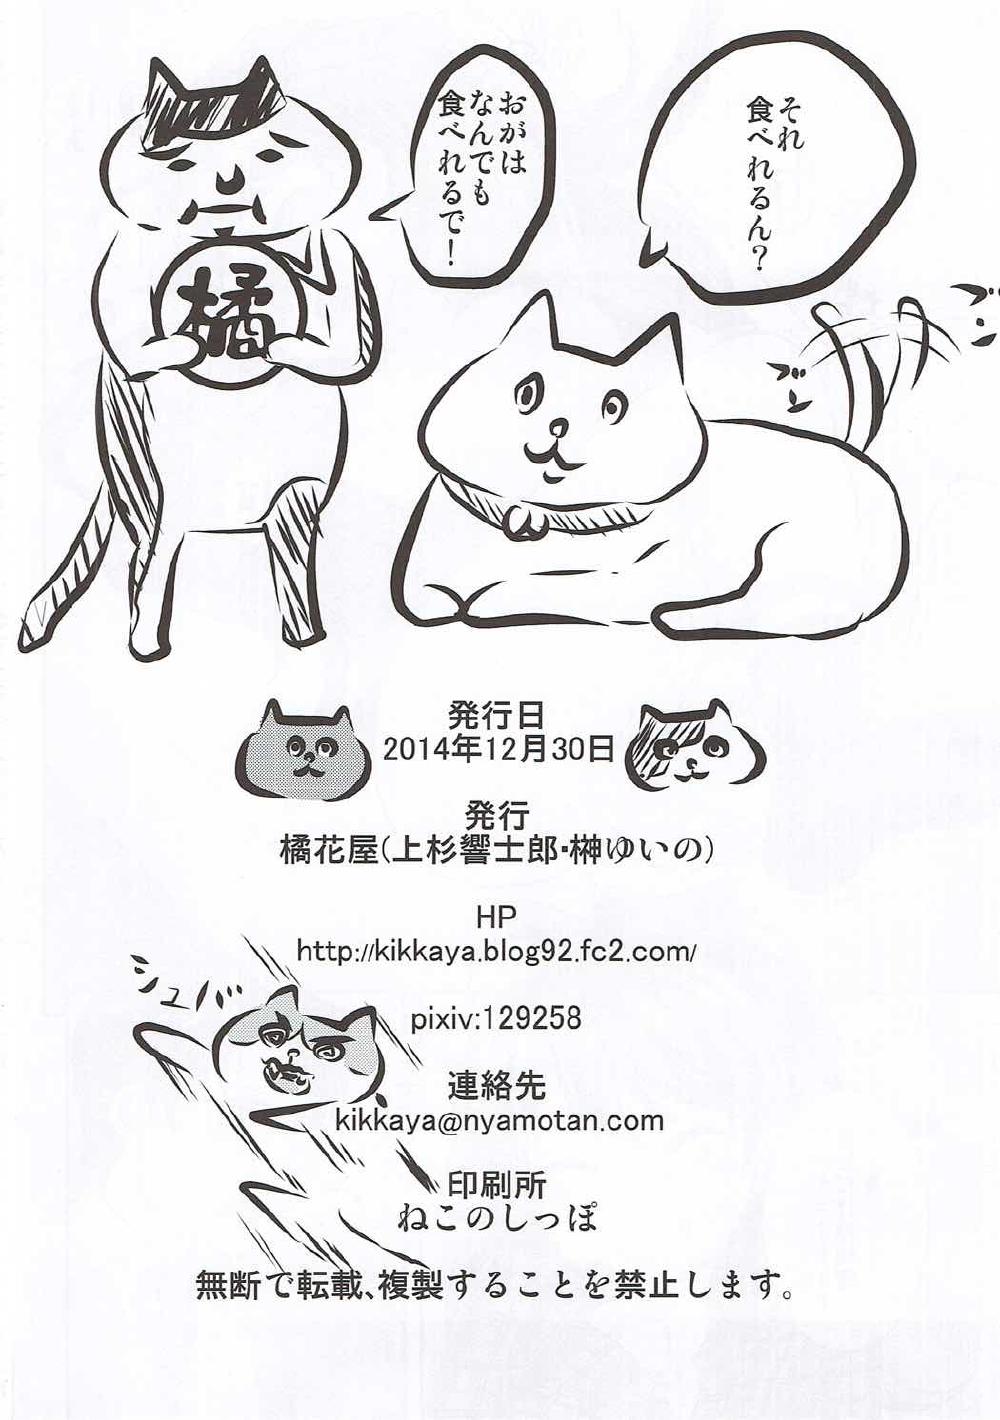 それ
食べれるん？
おがは
なんでも
食べれるで！
橘
ブン
ブン
発行日
2014年12月30日
発行
橘花屋(上杉響士郎・榊ゆいの)
HP
http://kikkaya.blog92.fc2.com/
シュバッ
pixiv:129258
連絡先
kikkaya@nyamotan.com
印刷所
ねこのしっぽ
無断で転載、複製することを禁止します。